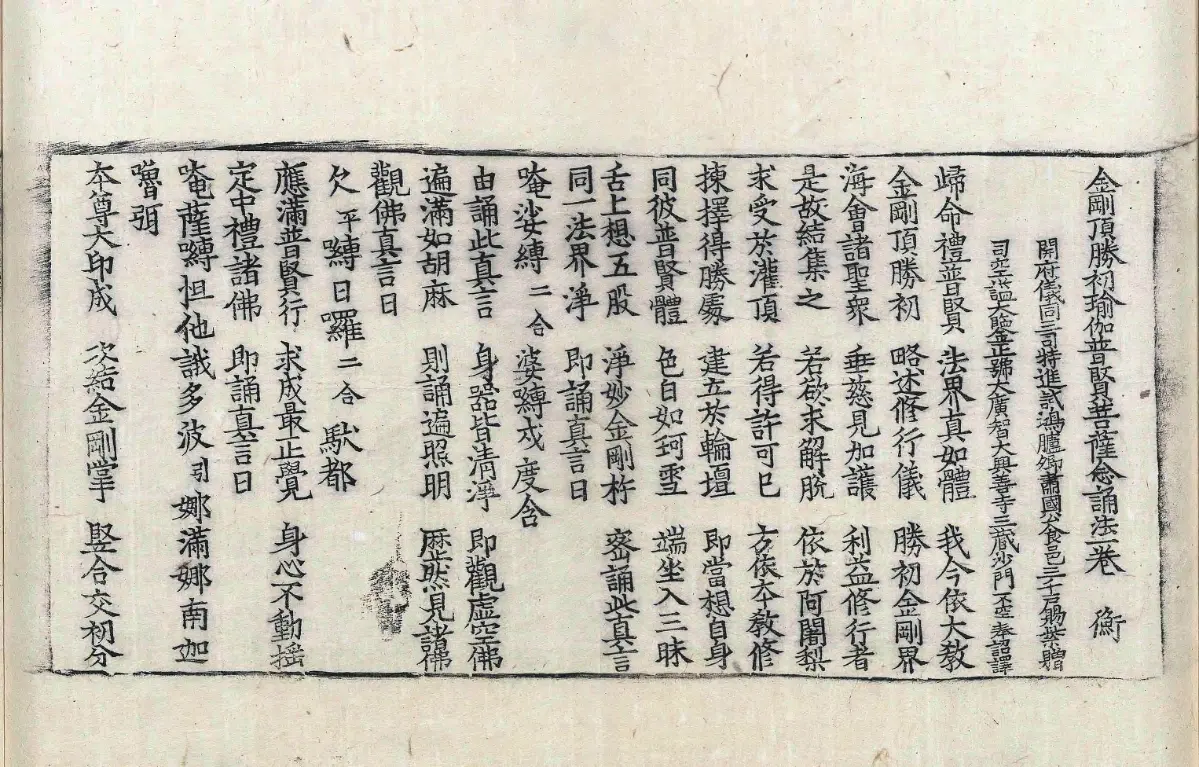 金剛頂勝初瑜伽普賢菩薩念誦法一卷 衡
開府儀同三司特進試鴻臚卿肅國公食邑三千戶賜紫贈
司空謚大鑒正號大廣智大興善寺三藏沙門不空奉詔譯
歸命禮普賢 法界真如體 我今依大教
金剛頂勝初 略述修行儀 勝初金剛界
海會諸聖衆 垂慈見加護 利益修行者
是故結集之 若欲求解脫 依於阿闍梨
求受於灌頂 若得許可已 方依本教修
揀擇得勝處 建立於輪壇 即當想自身
同彼普賢體 色白如珂雪 端坐入三昧
舌上想五股 淨妙金剛杵 密誦此真言
同一法界淨 即誦真言曰
唵娑縛二合婆縛戍度含
由誦此真言 身器皆清淨 即觀虛空佛
遍滿如胡麻 則誦遍照明 歷然見諸佛
觀佛真言曰
欠平嚩日囉二合馱都
應滿普賢行 求成最正覺 身心不動搖
定中禮諸佛 即誦真言曰
唵薩嚩怛他誐多波引娜滿娜南迦
嚕弭
本尊大印成 次結金剛掌 竪合交初分